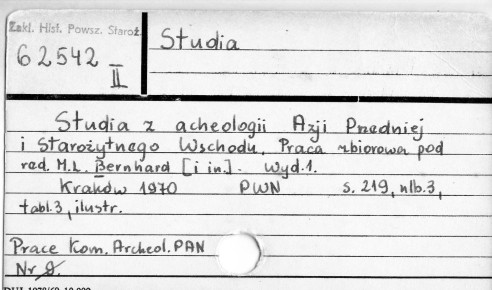 Zakl. Hist. Powsz. Staroż.
62542
II
Studia
Studia z acheologii Azji Przedniej
i Starożytnego Wschodu. Praca zbiorowa pod
red. M.L. Bernhard [i in.]. Wyd.1.
Kraków 1970 PWN s. 219, nlb.3,
tabl.3, ilustr.
Prace Kom. Archeol. PAN
Nr 9.